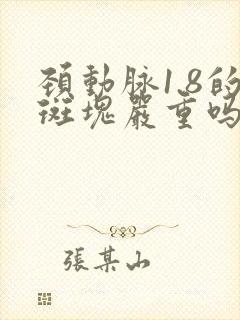 頚動脉1.8的
斑塊嚴重吗
張某山